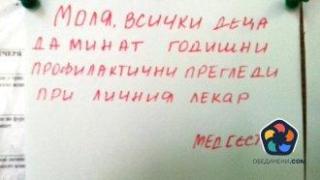 Моля, всички деца
да минат годишни
профилактични прегледи
при личния лекар
Мед сест
ОБЕДИНЕНИ.COM